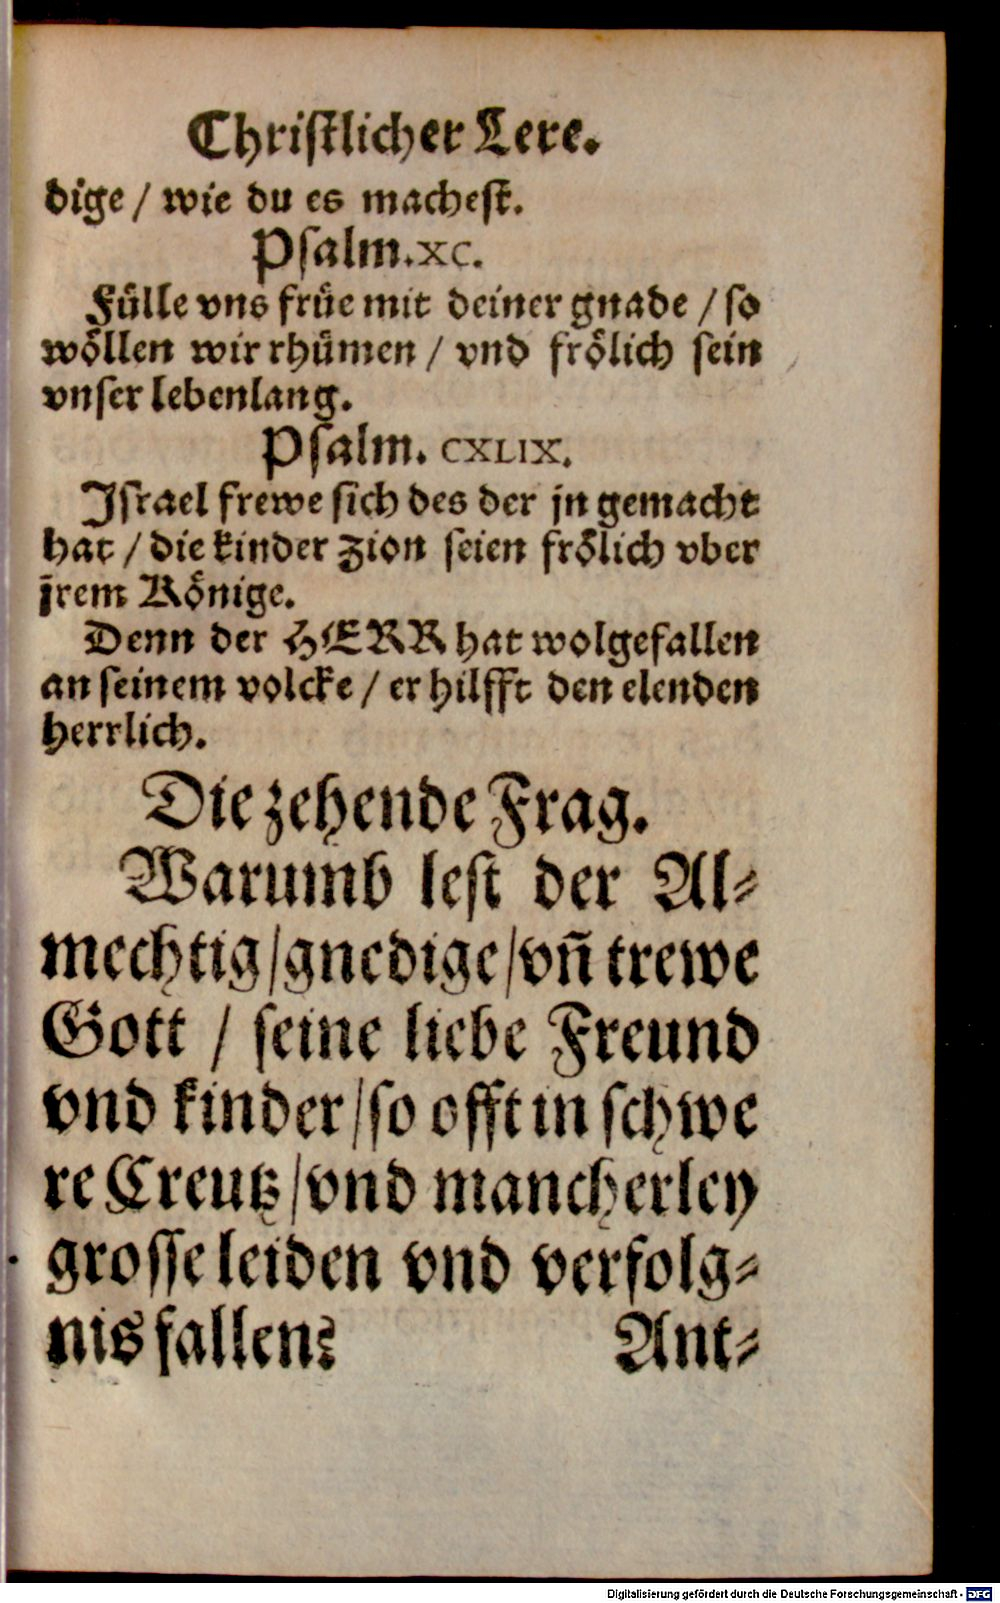 Christlicher Lere.
dige / wie du es machest.
Psalm.XC.
Fülle vns früe mit deiner gnade / so
wöllen wir rhümen / vnd frölich sein
vnser lebenlang.
Psalm. CXLIX.
Israel frewe sich des der jn gemacht
hat / die kinder Zion seien frölich vber
jrem Könige.
Denn der HERR hat wolgefallen
an seinem volcke / er hilfft den elenden
herrlich.
Die zehende Frag.
Warumb lest der Al⸗
mechtig / gnedige / vñ trewe
Gott / seine liebe Freund
vnd kinder / so offt in schwe
re Creutz / vnd mancherley
grosse leiden vnd verfolg⸗
nis fallen?
Ant⸗
Digitalisierung gefördert durch die Deutsche Forschungsgemeinschaft - DFG